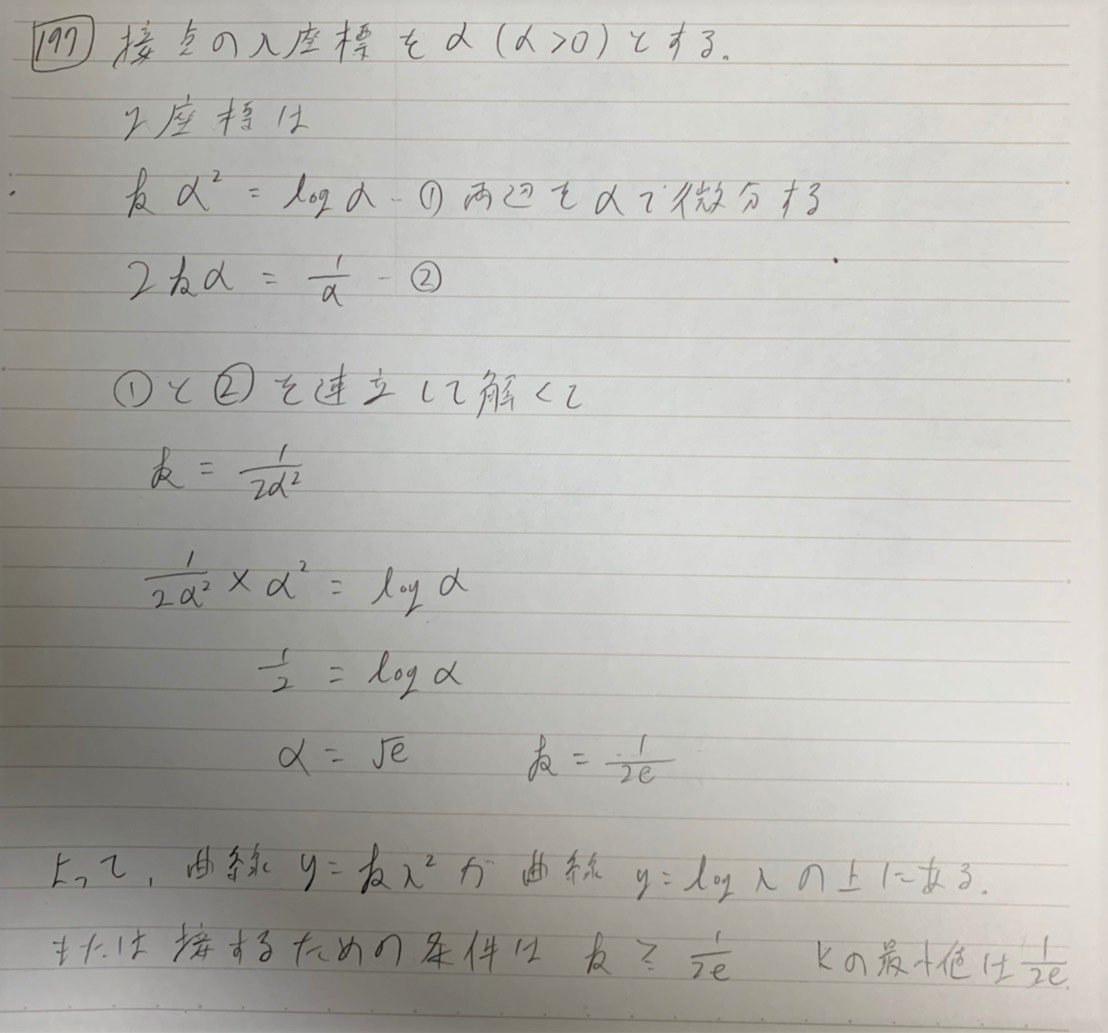 197 接点のx座標をα(α>0)とする。
y座標は
kα² = logα - ① 両辺をαで微分する
2kα = 1/α - ②
①と②を連立して解くと
k = 1/2α²
1/2α² × α² = logα
1/2 = logα
α = √e k = 1/2e
よって、曲線 y=kx² が曲線 y=logx の上にある。
または接するための条件は k ≧ 1/2e kの最小値は 1/2e